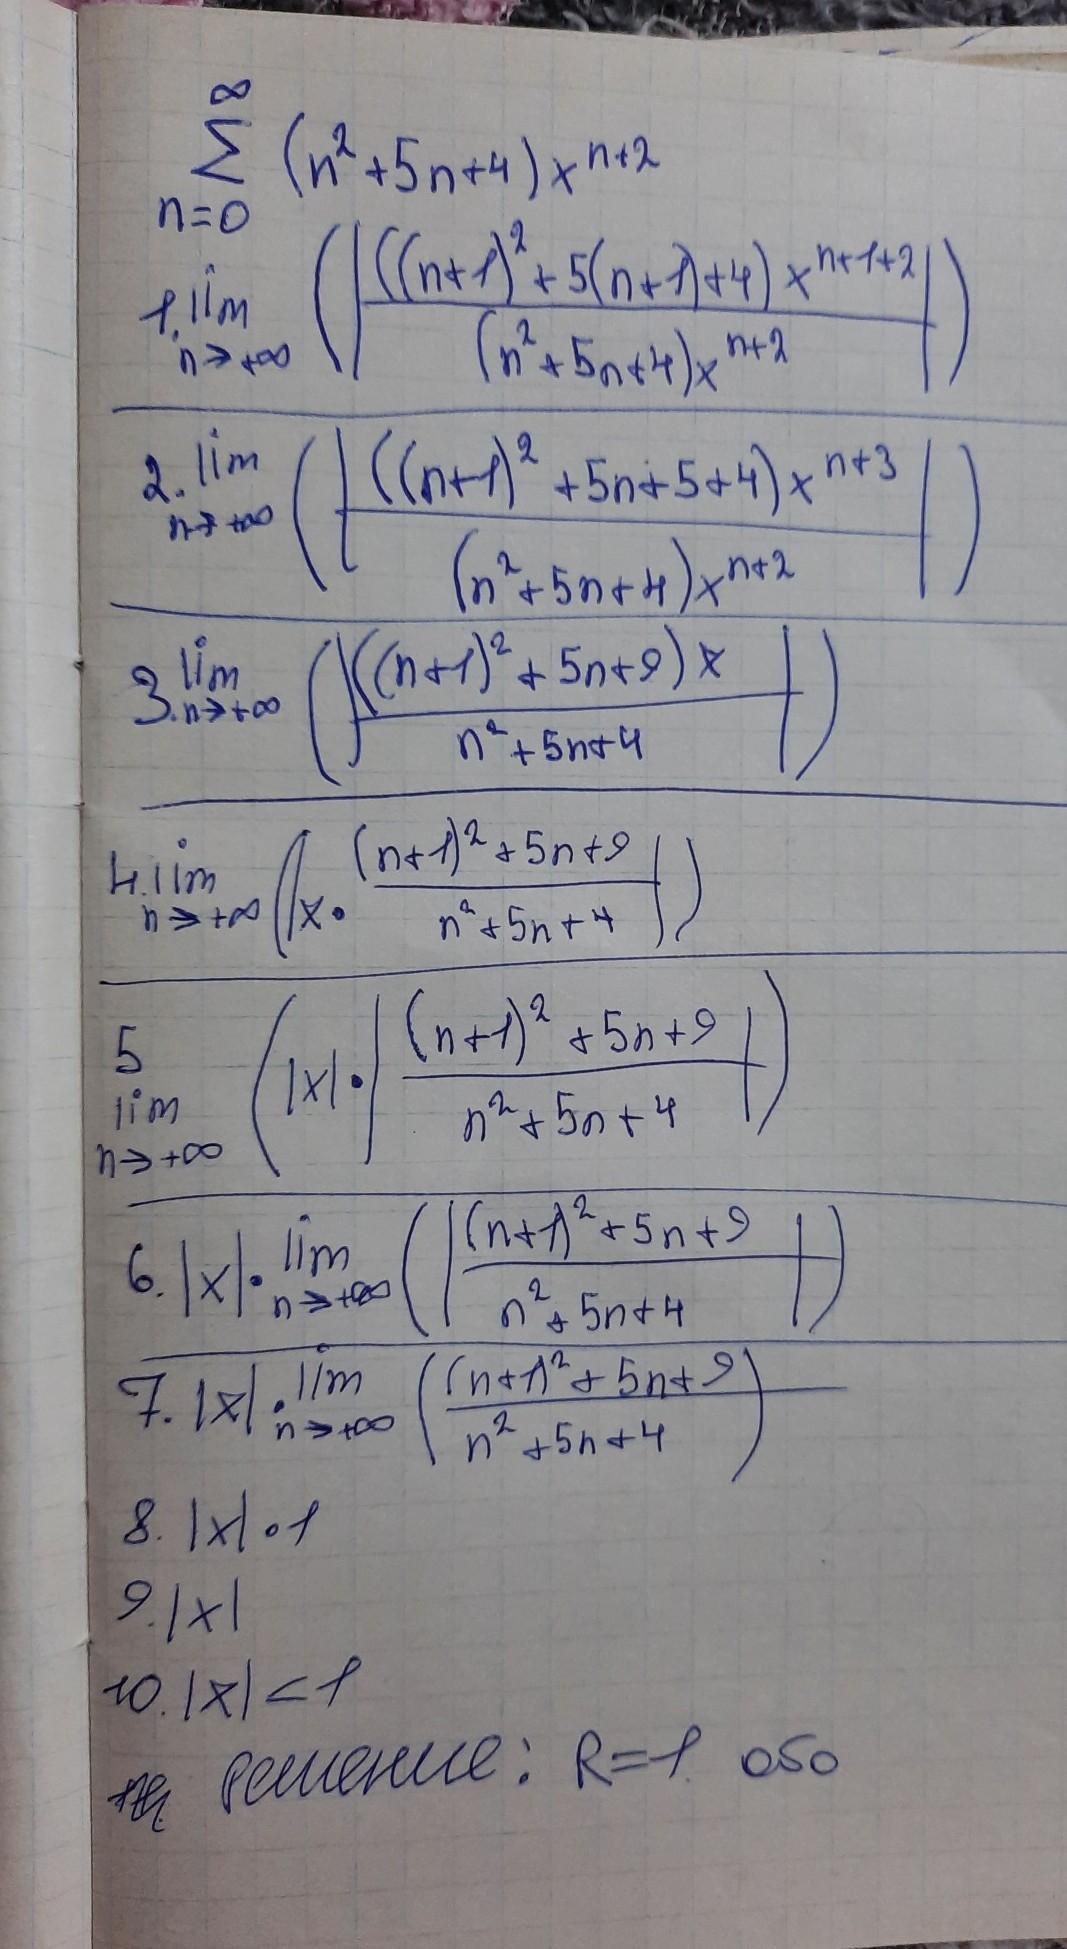 ∞
∑ (n² + 5n + 4) x^(n+2)
n=0
1. lim n→+∞ (|((n+1)² + 5(n+1) + 4) x^(n+1+2) / (n² + 5n + 4) x^(n+2)|)
2. lim n→+∞ (|((n+1)² + 5n + 5 + 4) x^(n+3) / (n² + 5n + 4) x^(n+2)|)
3. lim n→+∞ (|((n+1)² + 5n + 9) x / n² + 5n + 4|)
4. lim n→+∞ (|x · (n+1)² + 5n + 9 / n² + 5n + 4|)
5
lim n→+∞ (|x| · |(n+1)² + 5n + 9 / n² + 5n + 4|)
6. |x| · lim n→+∞ (|(n+1)² + 5n + 9 / n² + 5n + 4|)
7. |x| · lim n→+∞ ((n+1)² + 5n + 9 / n² + 5n + 4)
8. |x| · 1
9. |x|
10. |x| < 1
решение: R = 1.